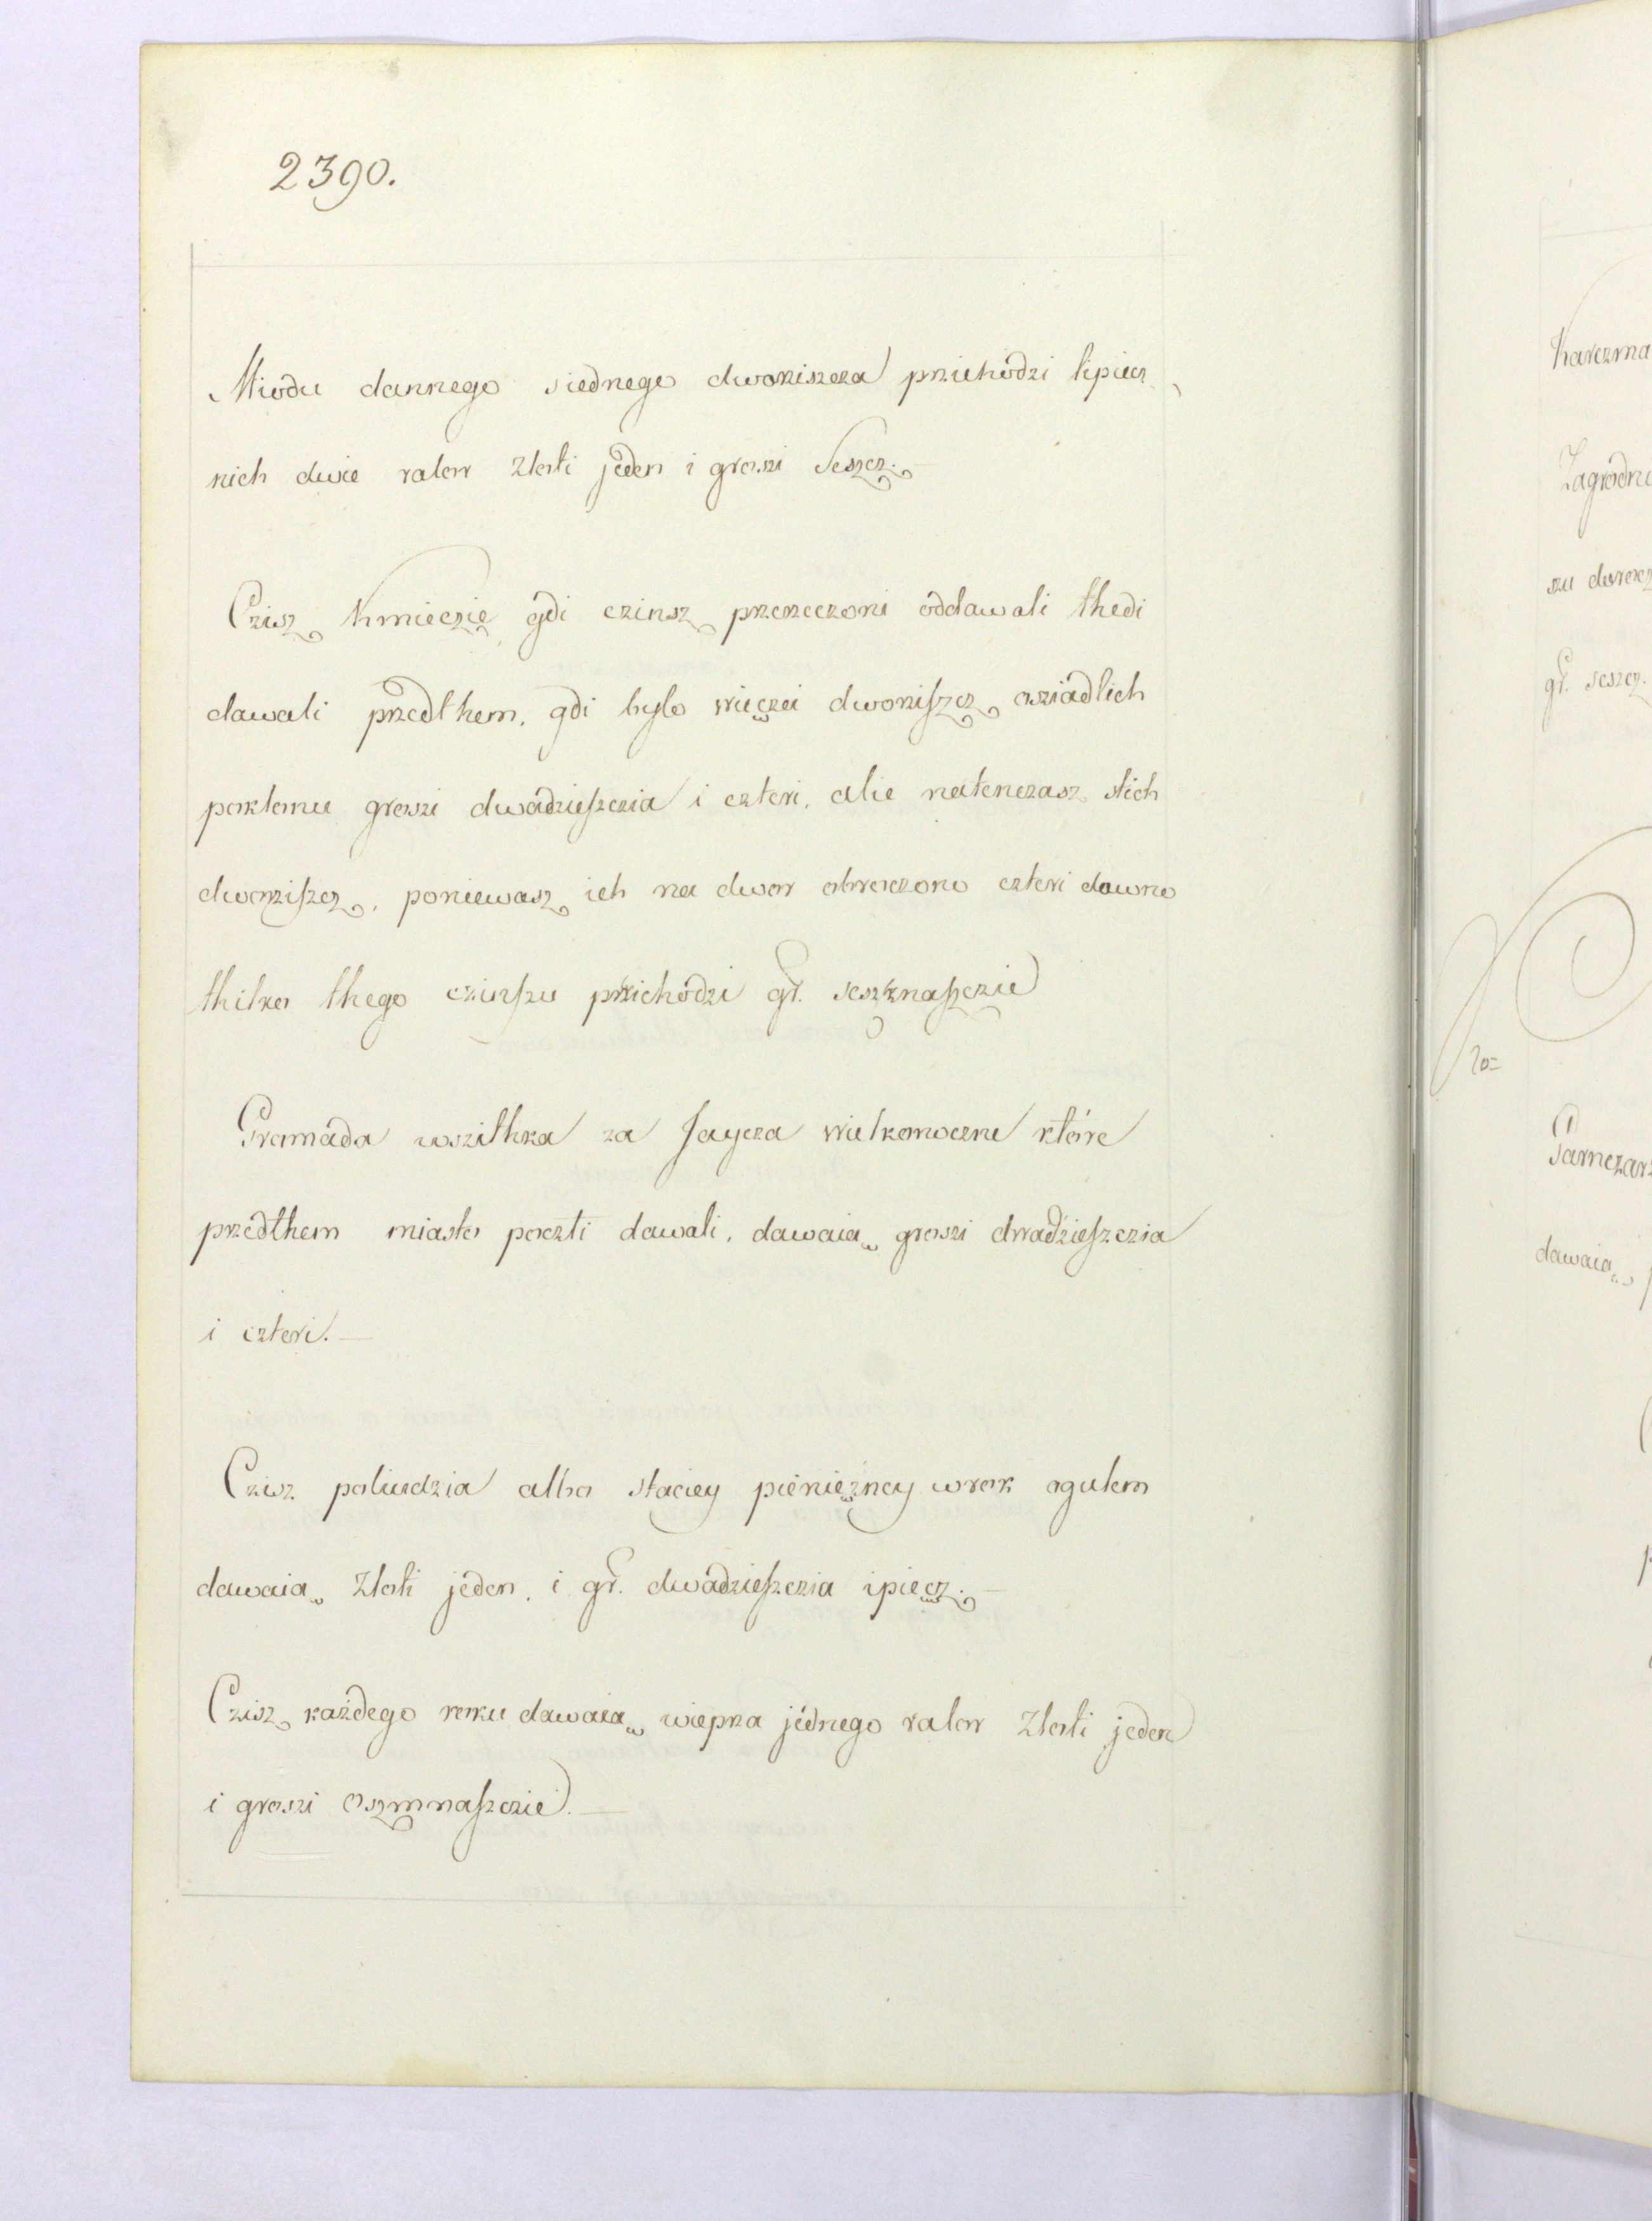 2390.
Miodu dannego siednego dworziszcza przichodzi lipiecz
nich dwie ralow Złoti jeden i groszi Seszcz.
Czisz Kmieczie gdi czinsz przerzeczoni oddawali thedi
dawali przedthem, gdi było więczei dworziszcz osziadlich
poktemu groszi dwadzieszczia i czteri, alie natenczasz stich
dworziszcz, poniewasz ich na dwor obroczono czteri dawno
thilko thego czinszu przichodzi gr. seszcznaszczie
Gromada wszithka za Jaycza wielkonoczne które
przedthem miasto poczti dawali, dawaią groszi dwadzieszczia
i czteri.
Czisz poliudzia albo staciey pieniężney wrok ogułem
dawaią Złoti jeden, i gr. dwadzieszczia ipięcz.
Czisz każdego roku dawaią wieprza jednego ralow Złoti jeden
i groszi Oszmnaszczie.
karczma
Zagrodni
szu dworcz
gr. seszcz.
Garnczarz
dawaią